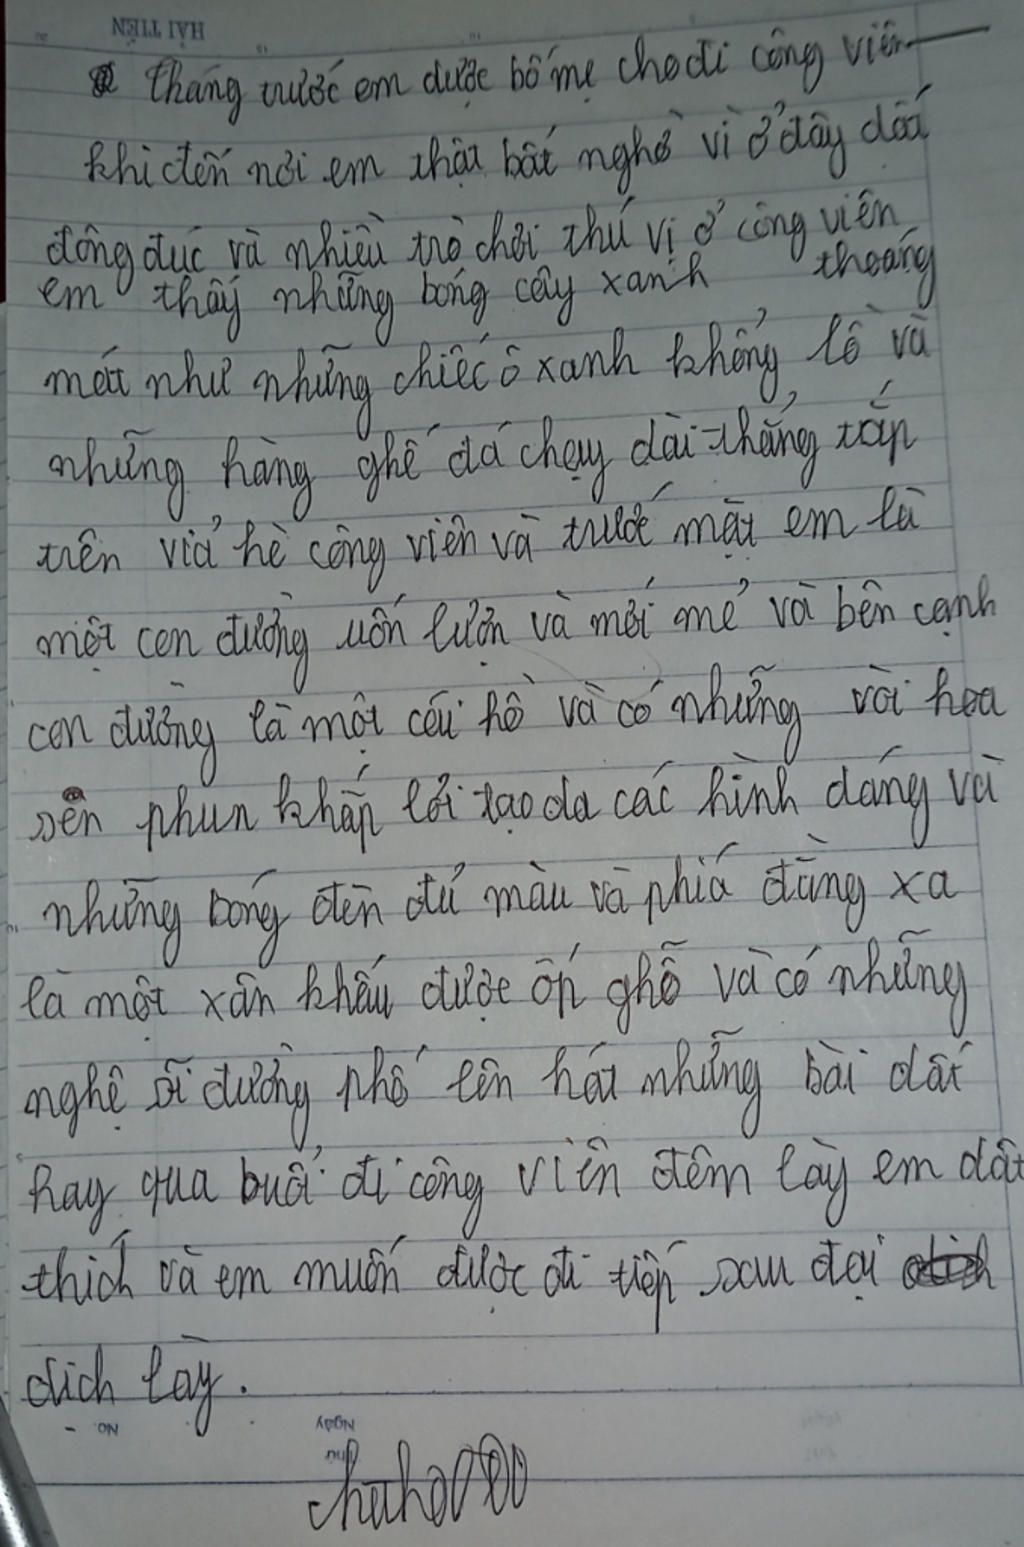 HẢI TIẾN
Tháng trước em được bố mẹ cho đi công viên
khi đến nơi em thật bất nghờ vì ở đây dất
đông đúc và nhiều trò chơi thú vị ở công viên
em thấy những bóng cây xanh thoáng
mát như những chiếc ô xanh khổng lồ và
những hàng ghế đá chạy dài thẳng tắp
trên vỉa hè công viên và trướć mặt em là
một con đường uốn lượn và mới mẻ và bên cạnh
con đường là một cái hồ và có những vòi hoa
sen phun khắp lơi tạo da các hình dáng và
những bóng đèn đủ màu và phía đằng xa
là một xân khấu được ốp ghỗ và có những
nghệ sĩ đường phố lên hát những bài dất
hay qua buổi đi công viên đêm lày em dất
thích và em muốn được đi tiếp sau đại
dich lày.
No.
Ngày
Thứ